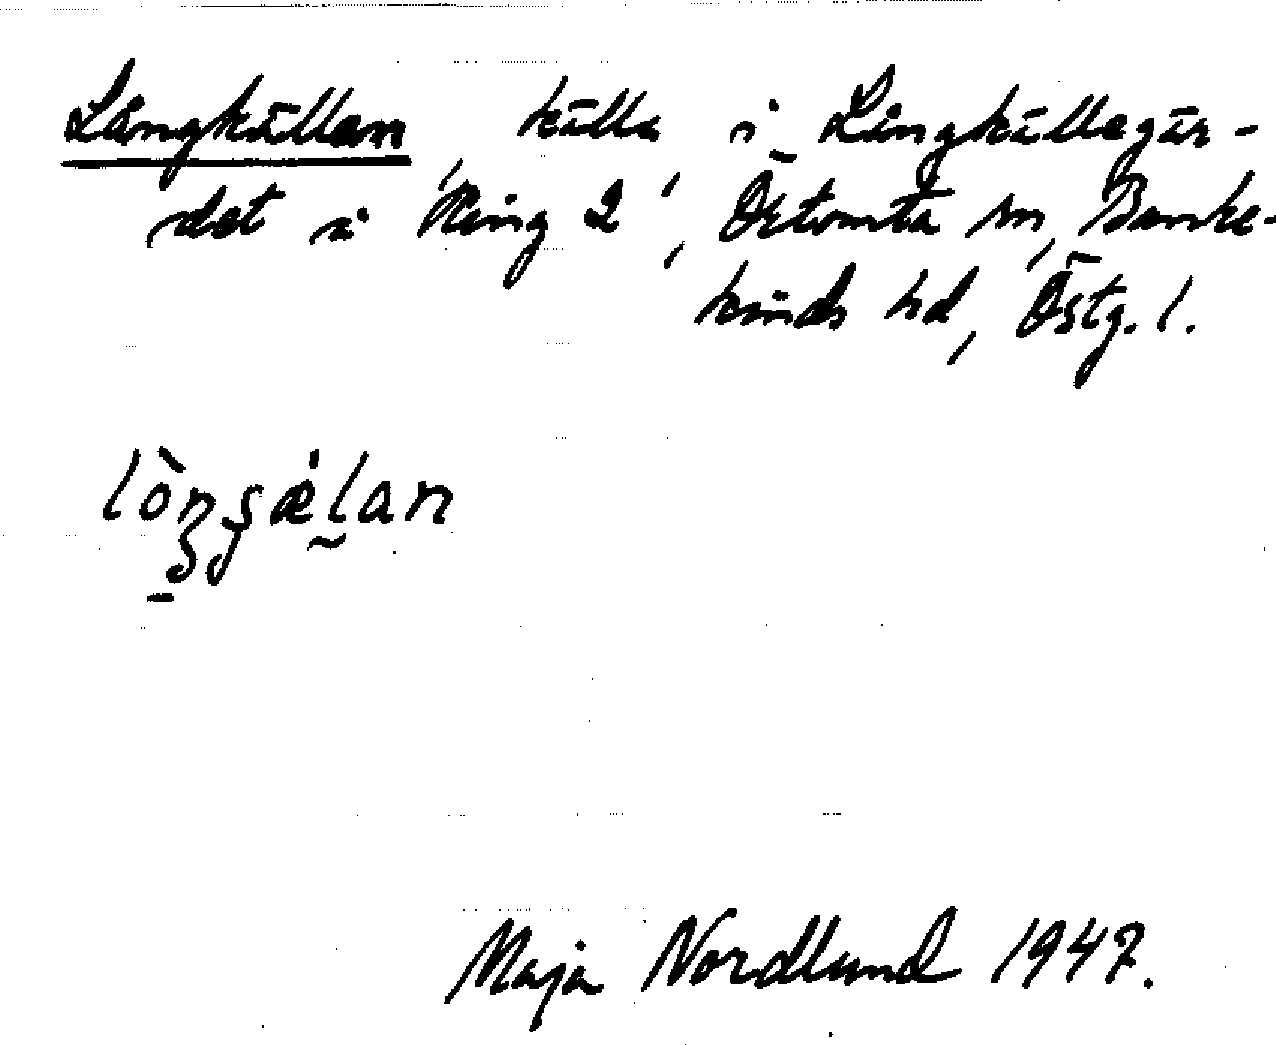 Långkällan, källa i Långkällegär-
det i 'Ring 2', Östomta sn, Banke-
kinds hd, Östg. l.
Maja Nordlund 1947.